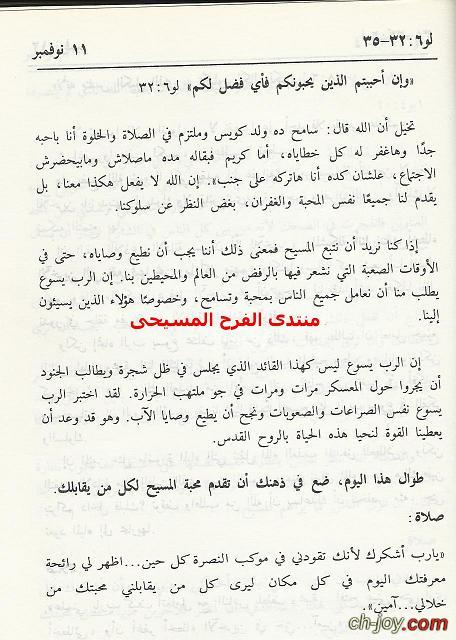 لو٦: ٣٢-٣٥
١١ نوفمبر
«وإن أحببتم الذين يحبونكم فأي فضل لكم» لو٦: ٣٢
تخيل أن الله قال: سامح ده ولد كويس وملتزم في الصلاة والخلوة أنا باحبه
جدًا وهاغفر له كل خطاياه، أما كريم فبقاله مده ماصلاش ومابيحضرش
الاجتماع، علشان كده أنا هاتركه على جنب». إن الله لا يفعل هكذا معنا، بل
يقدم لنا جميعًا نفس المحبة والغفران، بغض النظر عن سلوكنا.
إذا كنا نريد أن نتبع المسيح فمعنى ذلك أننا يجب أن نطيع وصاياه، حتى في
الأوقات الصعبة التي نشعر فيها بالرفض من العالم والمحيطين بنا. إن الرب يسوع
يطلب منا أن نعامل جميع الناس بمحبة وتسامح، وخصوصًا هؤلاء الذين يسيئون
إلينا.
منتدى الفرح المسيحى
إن الرب يسوع ليس كهذا القائد الذي يجلس في ظل شجرة ويطالب الجنود
أن يجروا حول المعسكر مرات ومرات في جو ملتهب الحرارة. لقد اختبر الرب
يسوع نفس الصراعات والصعوبات ونجح أن يطيع وصايا الآب. وهو قد وعد أن
يعطينا القوة لنحيا هذه الحياة بالروح القدس.
طوال هذا اليوم، ضع في ذهنك أن تقدم محبة المسيح لكل من يقابلك.
صلاة:
«يارب أشكرك لأنك تقودني في موكب النصرة كل حين...اظهر لي رائحة
معرفتك اليوم في كل مكان ليرى كل من يقابلني محبتك من
خلالي...آمين».
ch-joy.com